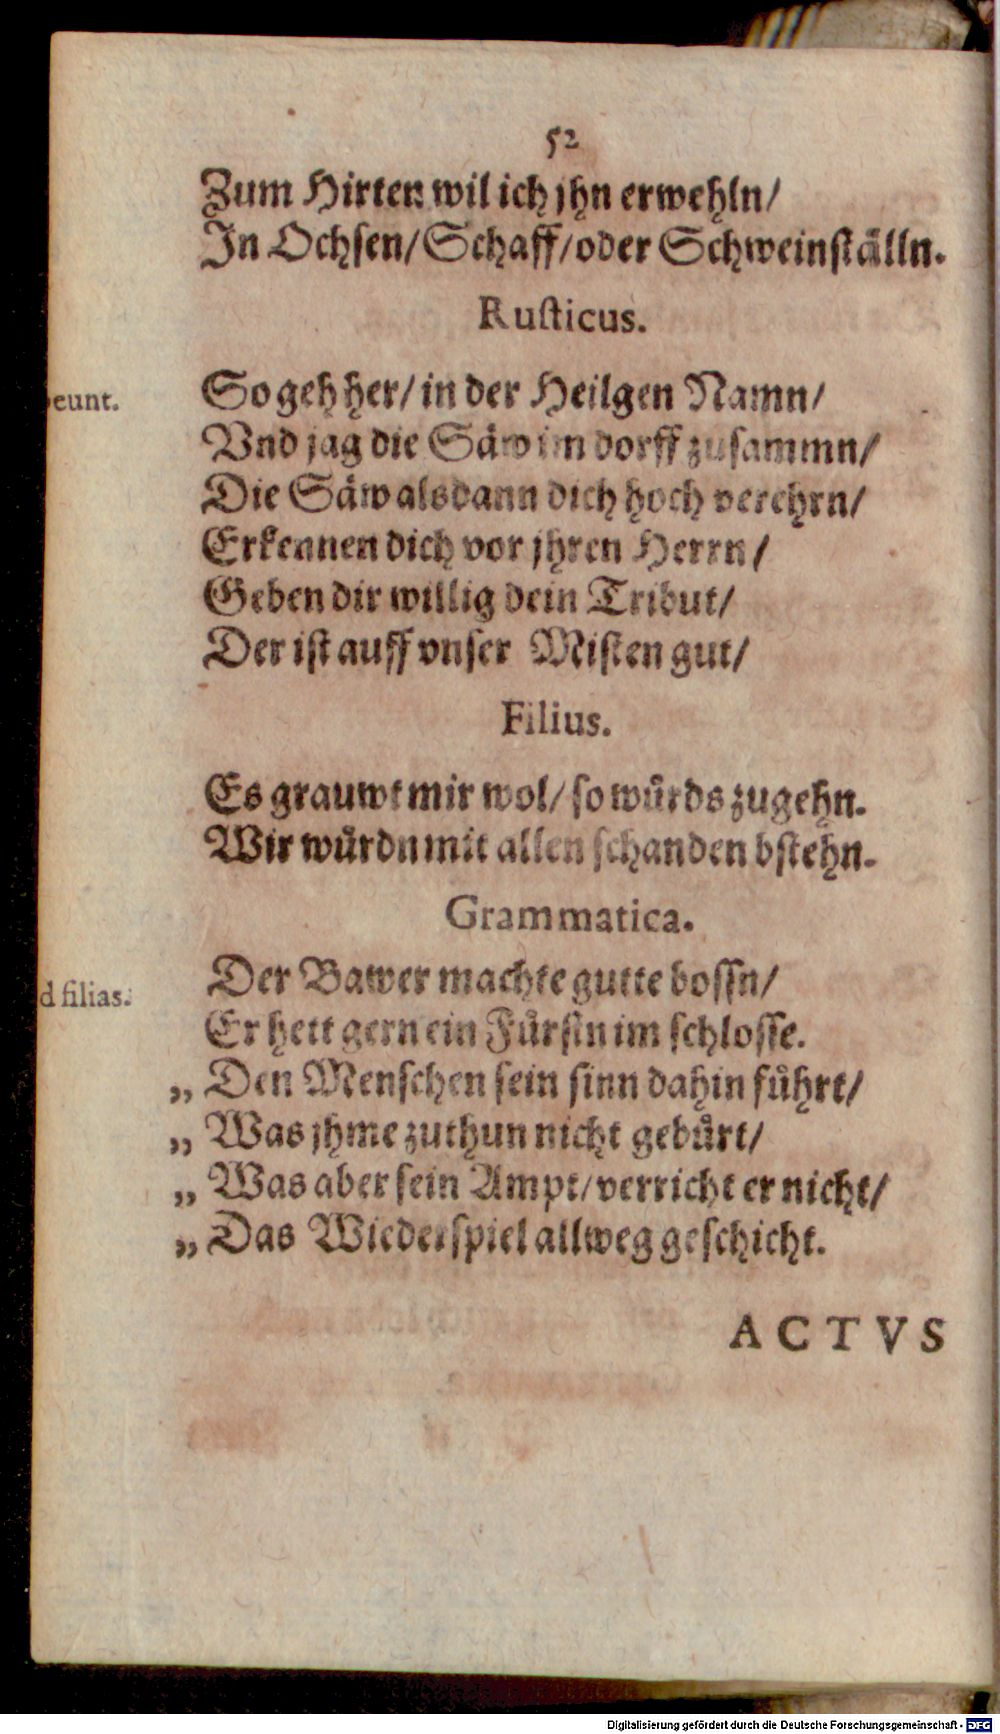 52
Zum Hirten wil ich jhn erwehln/
In Ochsen/Schaff/oder Schweinställn.
Rusticus.
eunt.
So geh her/ in der Heilgen Namn/
Vnd jag die Säw im dorff zusammn/
Die Säw alsdann dich hoch verehrn/
Erkennen dich vor jhren Herrn/
Geben dir willig dein Tribut/
Der ist auff vnser Misten gut/
Filius.
Es grauwt mir wol/ so wuͤrds zugehn.
Wir wuͤrdn mit allen schanden bstehn.
Grammatica.
d filias.
Der Bawer machte gutte bossn/
Er hett gern ein Fuͤrstn im schlosse.
„ Den Menschen sein sinn dahin fuͤhrt/
„ Was jhme zuthun nicht gebuͤrt/
„ Was aber sein Ampt/verricht er nicht/
„ Das Wiederspiel allweg geschicht.
ACTVS
Digitalisierung gefördert durch die Deutsche Forschungsgemeinschaft - DFG